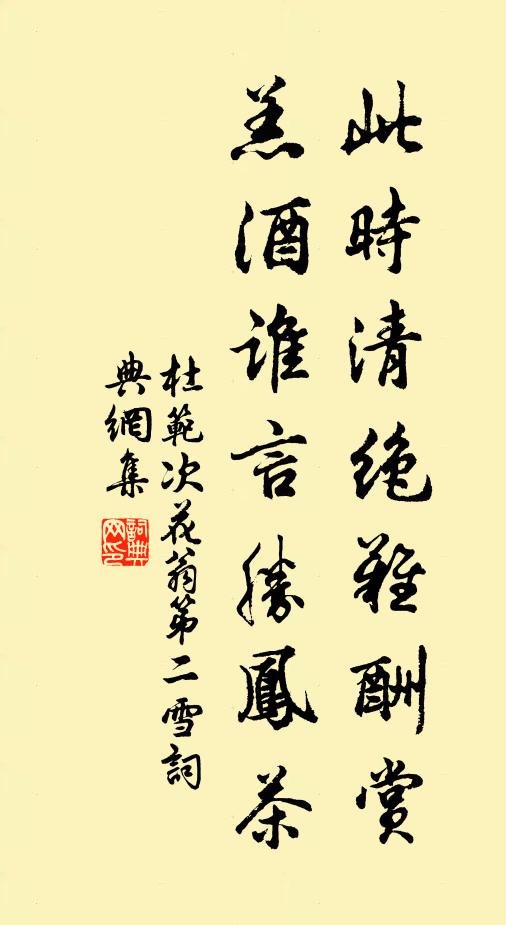 此時清絶難酬賞
羔酒誰言勝鳳茶
杜範次花翁第二雪詞
典網集
詞典网印